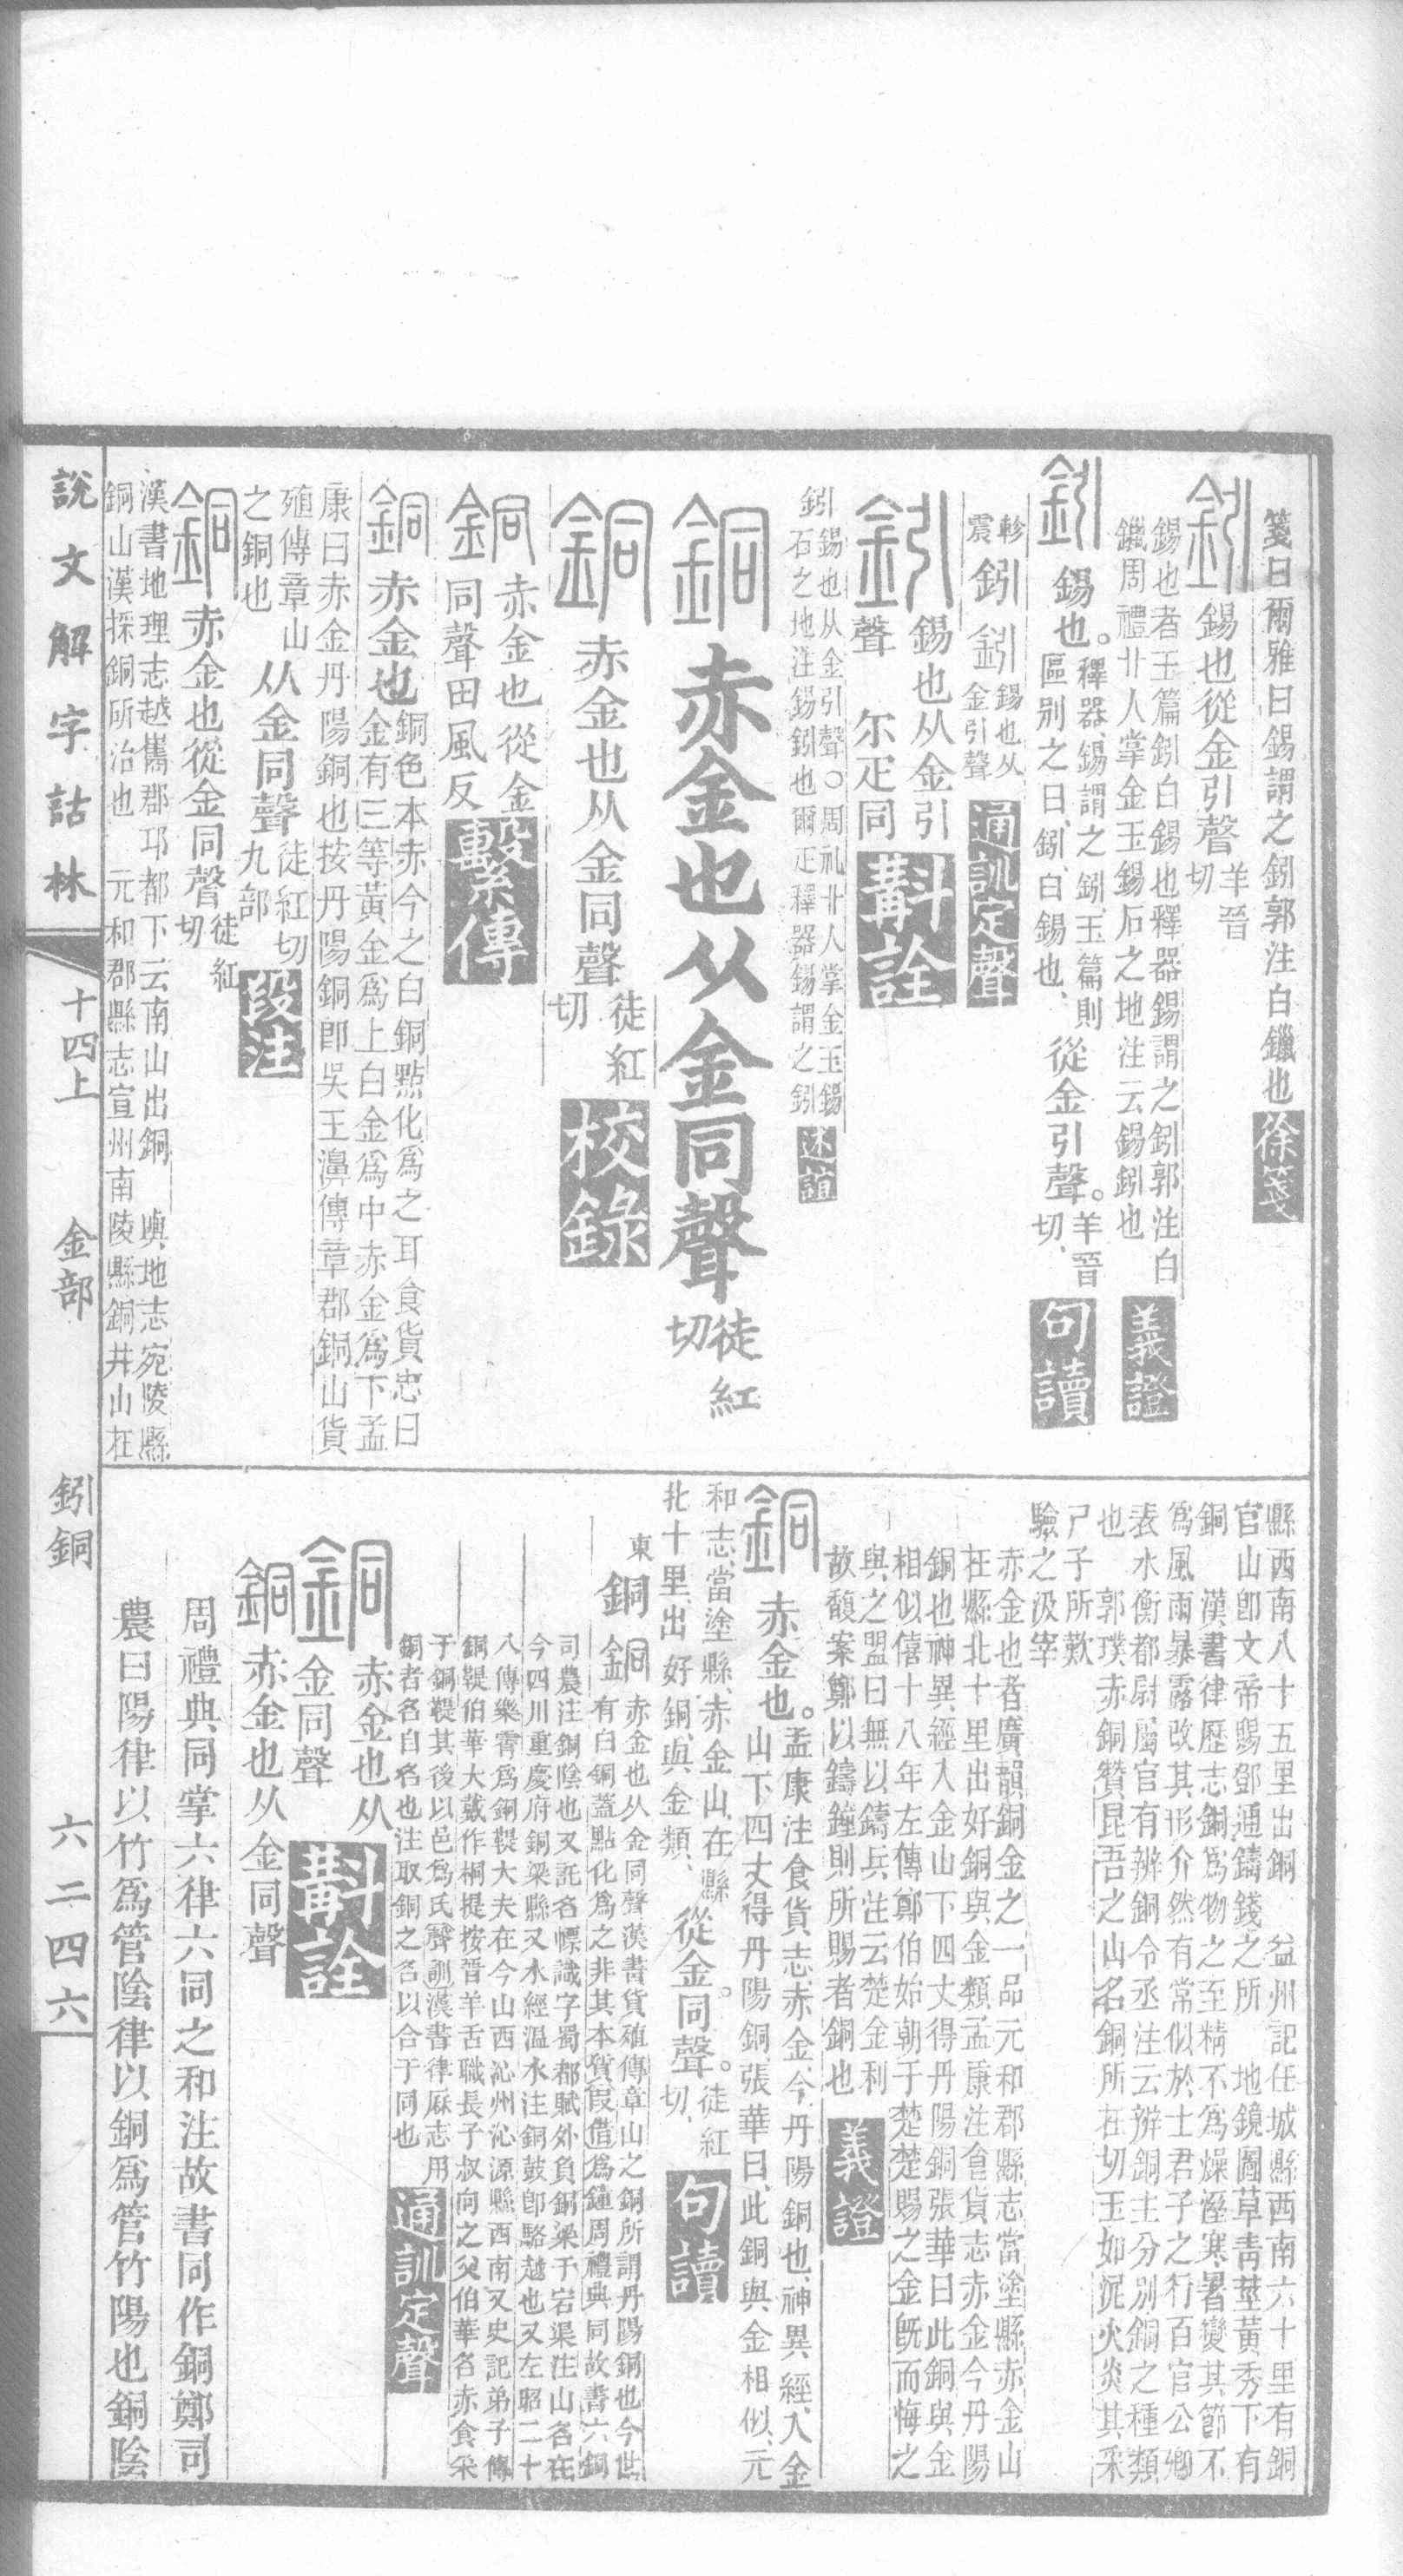 箋曰爾雅曰錫謂之鈏郭注白鑞也徐箋
鈏錫也從金引聲羊晉切
錫也者玉篇鈏白錫也釋器錫謂之鈏郭注白
鑞周禮卝人掌金玉錫石之地注云錫鈏也義證
鈏錫也。釋器、錫謂之鈏、玉篇則
區別之曰、鈏、白錫也、從金引聲。羊晉切、句讀
軫震鈏鈏錫也从金引聲通訓定聲
鈏錫也从金引聲尔疋同斠詮
鈏錫也从金引聲○周礼卝人掌金玉錫
石之地注錫鈏也爾疋釋器錫謂之鈏述誼
銅赤金也从金同聲徒紅切
銅赤金也从金同聲徒紅切校錄
銅赤金也從金同聲田風反繫傳
銅赤金也銅色本赤今之白銅點化爲之耳食貨志曰
金有三等黃金爲上白金爲中赤金爲下孟
康曰赤金丹陽銅也按丹陽銅卽吳王濞傳章郡銅山貨
殖傳章山之銅也从金同聲徒紅切九部段注
銅赤金也從金同聲徒紅切
漢書地理志越巂郡邛都下云南山出銅　輿地志宛陵縣
銅山漢採銅所治也　元和郡縣志宣州南陵縣銅井山在
縣西南八十五里出銅　益州記任城縣西南六十里有銅
官山卽文帝賜鄧通鑄錢之所　地鏡圖草靑莖黃秀下有
銅　漢書律歷志銅爲物之至精不爲燥溼寒暑變其節不
爲風雨暴露改其形介然有常似於士君子之行百官公卿
表水衡都尉屬官有辨銅令丞注云辨銅主分別銅之種類
也　郭璞赤銅贊昆吾之山名銅所在切玉如泥火炎其采
尸子所歎
驗之汲宰
赤金也者廣韻銅金之一品元和郡縣志當塗縣赤金山
在縣北十里出好銅與金類孟康注食貨志赤金今丹陽
銅也神異經入金山下四丈得丹陽銅張華曰此銅與金
相似僖十八年左傳鄭伯始朝于楚楚賜之金旣而悔之
與之盟曰無以鑄兵注云楚金利
故馥案鄭以鑄鐘則所賜者銅也義證
銅赤金也。孟康注食貨志、赤金、今丹陽銅也、神異經、入金
山下四丈得丹陽銅、張華曰、此銅與金相似、元
和志、當塗縣、赤金山、在縣
北十里、出好銅、與金類、從金同聲。徒紅切、句讀
東銅銅赤金也从金同聲漢書貨殖傳章山之銅所謂丹陽銅也今世
有白銅蓋點化爲之非其本質叚借爲鐘周禮典同故書六銅
司農注銅陰也又託名幖識字蜀都賦外負銅梁于宕渠注山名在
今四川重慶府銅梁縣又水經溫水注銅鼓卽駱越也又左昭二十
八傳樂霄爲銅鞮大夫在今山西沁州沁源縣西南又史記弟子傳
銅鞮伯華大戴作桐提按晉羊舌職長子叔向之父伯華名赤食采
于銅鞮其後以邑爲氏聲訓漢書律厤志用
銅者名自名也注取銅之名以合于同也通訓定聲
銅赤金也从金同聲斠詮
銅赤金也从金同聲
周禮典同掌六律六同之和注故書同作銅鄭司
農曰陽律以竹爲管陰律以銅爲管竹陽也銅陰
說文解字詁林　十四上　金部　鈏銅　六二四六